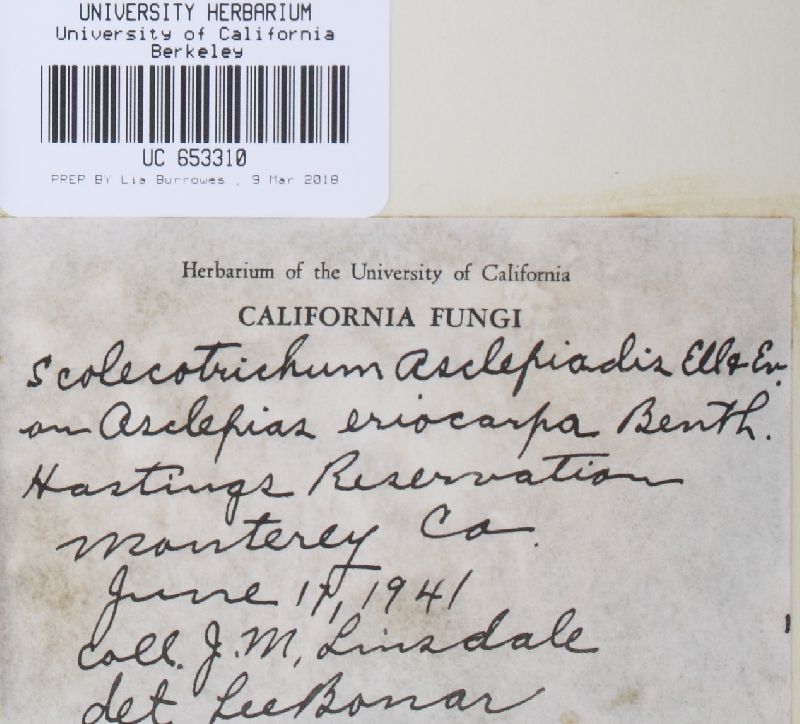 UNIVERSITY HERBARIUM
University of California
Berkeley
UC 653310
PREP BY Lia Burrowes , 9 Mar 2018
Herbarium of the University of California
CALIFORNIA FUNGI
Scolecotrichum Asclepiadis Ell & Ev.
on Asclepias eriocarpa Benth.
Hastings Reservation
Monterey Co.
June 1941
coll. J. M. Linsdale
det Lee Bonar